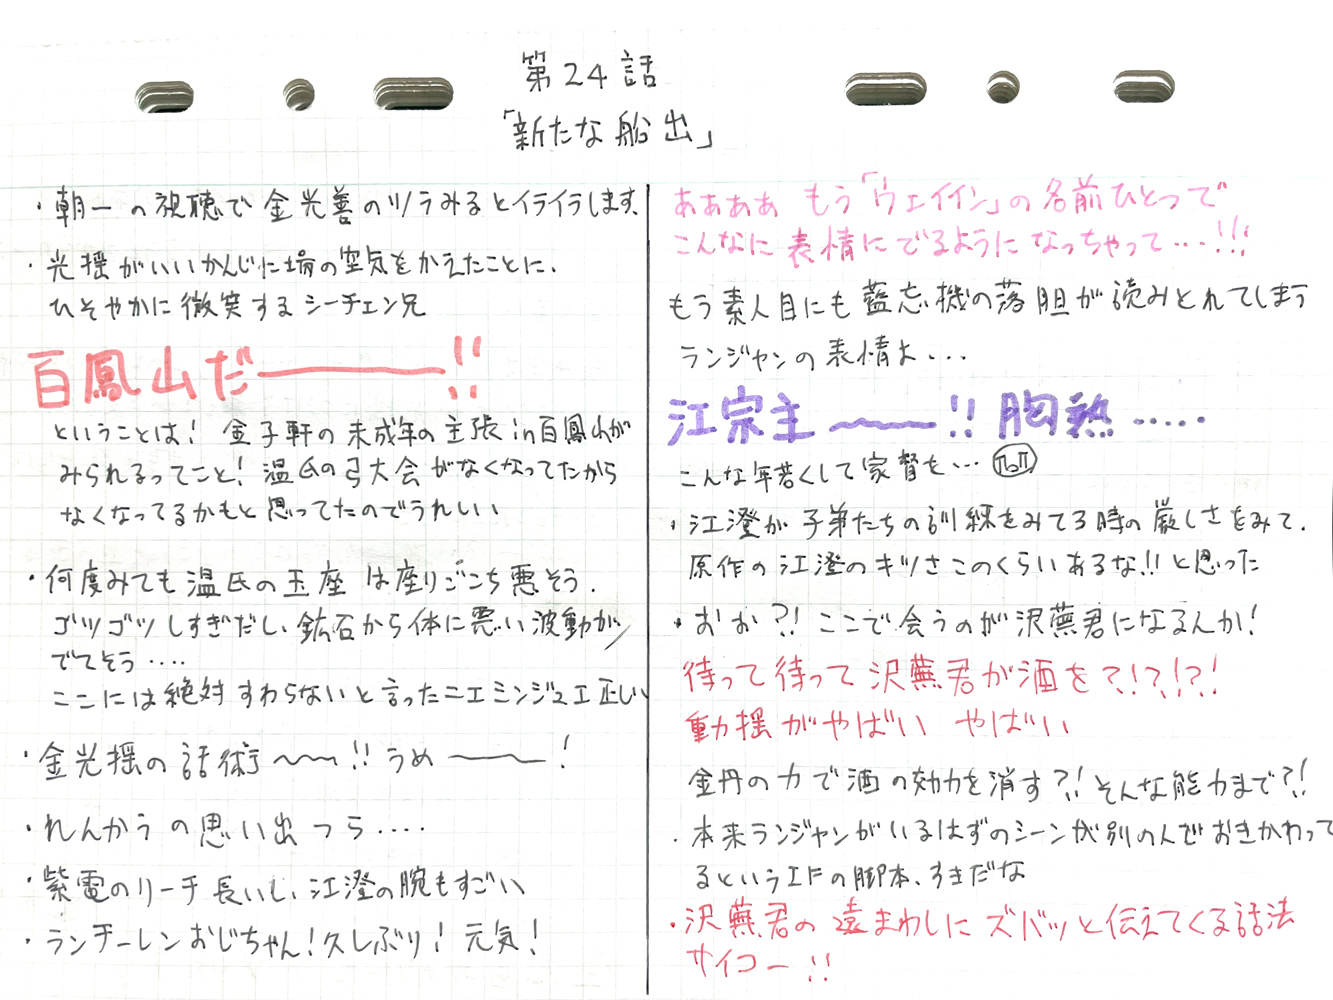 第24話
「新たな船出」
・朝一の視聴で金光善のツラみるとイライラします、
・光揺がいいかんじに場の空気をかえたことに、
ひそやかに微笑するシーチェン兄
百鳳山だ――――!!
ということは!金子軒の未成年の主張in百鳳山が
みられるってこと!温氏の弓大会がなくなってたから
なくなってるかもと思ってたのでうれしい
・何度みても温氏の玉座は座りごこち悪そう.
ゴツゴツしすぎだし、鉱石から体に悪い波動が
でてそう‥‥
ここには絶対すわらないと言ったニエミンジュエ正しい
・金光揺の話術〜〜!!うめ――!
・れんかうの思い出つら‥‥
・紫電のリーチ長いし、江澄の腕もすごい
・ランチーレンおじちゃん!久しぶり!元気!
ああああ もう「ウェイイン」の名前ひとつで
こんなに表情にでるようになっちゃって…!!!
もう素人目にも藍忘機の落胆が読みとれてしまう
ランジャンの表情よ...
江宗主〜〜!!胸熱……
こんな年若くして家督を…
・江澄が子弟たちの訓練をみてる時の厳しさをみて、
原作の江澄のキツさこのくらいあるな!!と思った
・おお?!ここで会うのが沢蕪君になるんか!
待って待って沢蕪君が酒を?!?!?!
動揺がやばい やばい
金丹の力で酒の効力を消す?!そんな能力まで?!
・本来ランジャンがいるはずのシーンが別の人でおきかわって
るというIFの脚本、すきだな
・沢蕪君の遠まわしにズバッと伝えてくる話法
サイコー!!